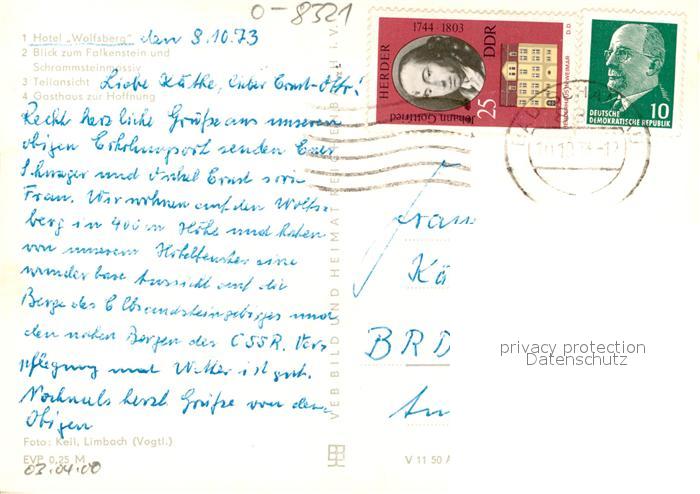 o-8321
1 Hotel „Wolfsberg" den 8.10.73
2 Blick zum Falkenstein und
Schrammsteinmassiv
3 Teilansicht
4 Gasthaus zur Hoffnung
Liebe Käthe, lieber Ernst-Otto!
Recht herzliche Grüße aus unseren
obigen Erholungsort senden Euer
Schwager und Onkel Ernst sowie
Frau. Wir wohnen auf den Wolfs-
berg in 400 m Höhe und haben
von unserem Hotelfenster eine
wunderbare Aussicht auf die
Berge des Elbsandsteingebirges und
den nahen Bergen des CSSR. Ver-
pflegung und Wetter ist gut.
Nochmals herzl. Grüße von den
Obigen
Foto: Keil, Limbach (Vogtl.)
EVP 0,25 M
03.04.00
VEB BILD UND HEIMAT
V 11 50 A
Frau
Kä
BRD
HERDER
1744 · 1803
Johann Gottfried
DDR
25
10
DEUTSCHE
DEMOKRATISCHE REPUBLIK
privacy protection
Datenschutz